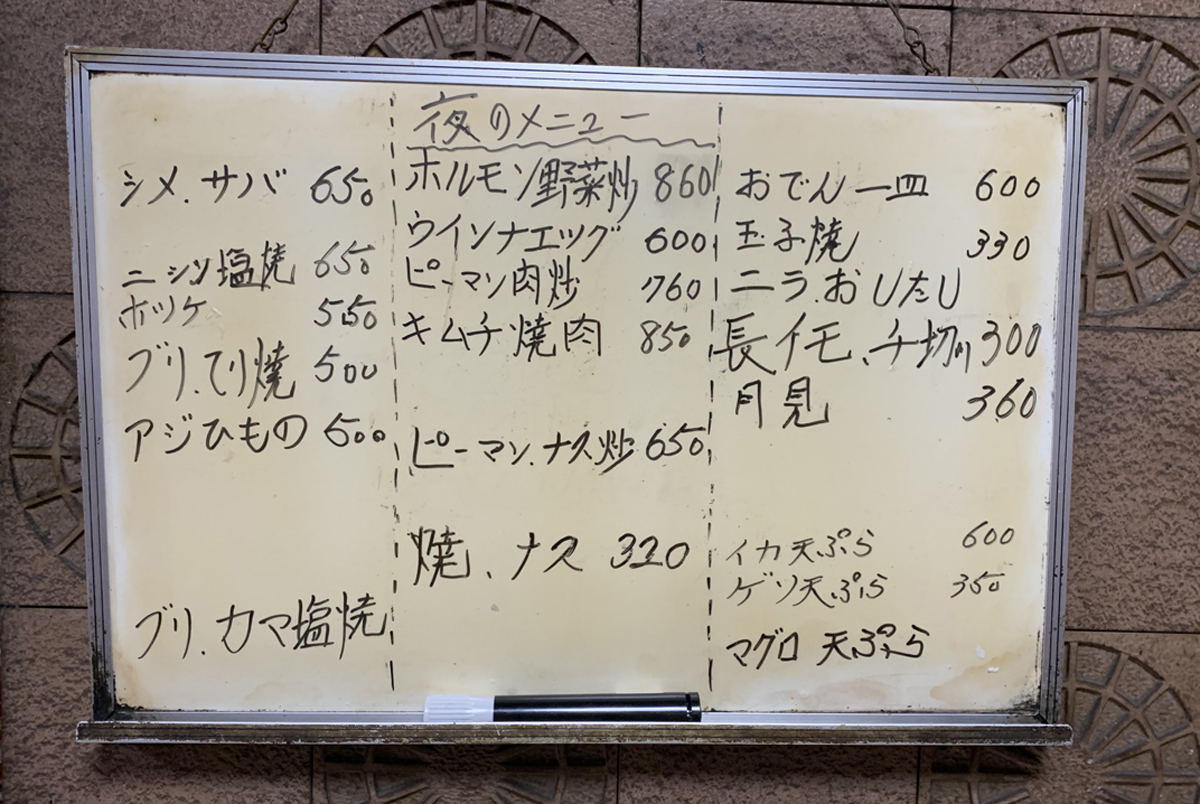 夜のメニュー
シメ.サバ 650
ニシン塩焼 650
ホッケ 550
ブリ.てり焼 500
アジひもの 500
ブリ.カマ塩焼
ホルモン野菜炒 860
ウインナエッグ 600
ピーマン肉炒 760
キムチ焼肉 850
ピーマン.ナス炒 650
焼、ナス 320
おでん一皿 600
玉子焼 330
ニラ.おしたし
長イモ、千切り 300
月見 360
イカ天ぷら 600
ゲソ天ぷら 350
マグロ天ぷら